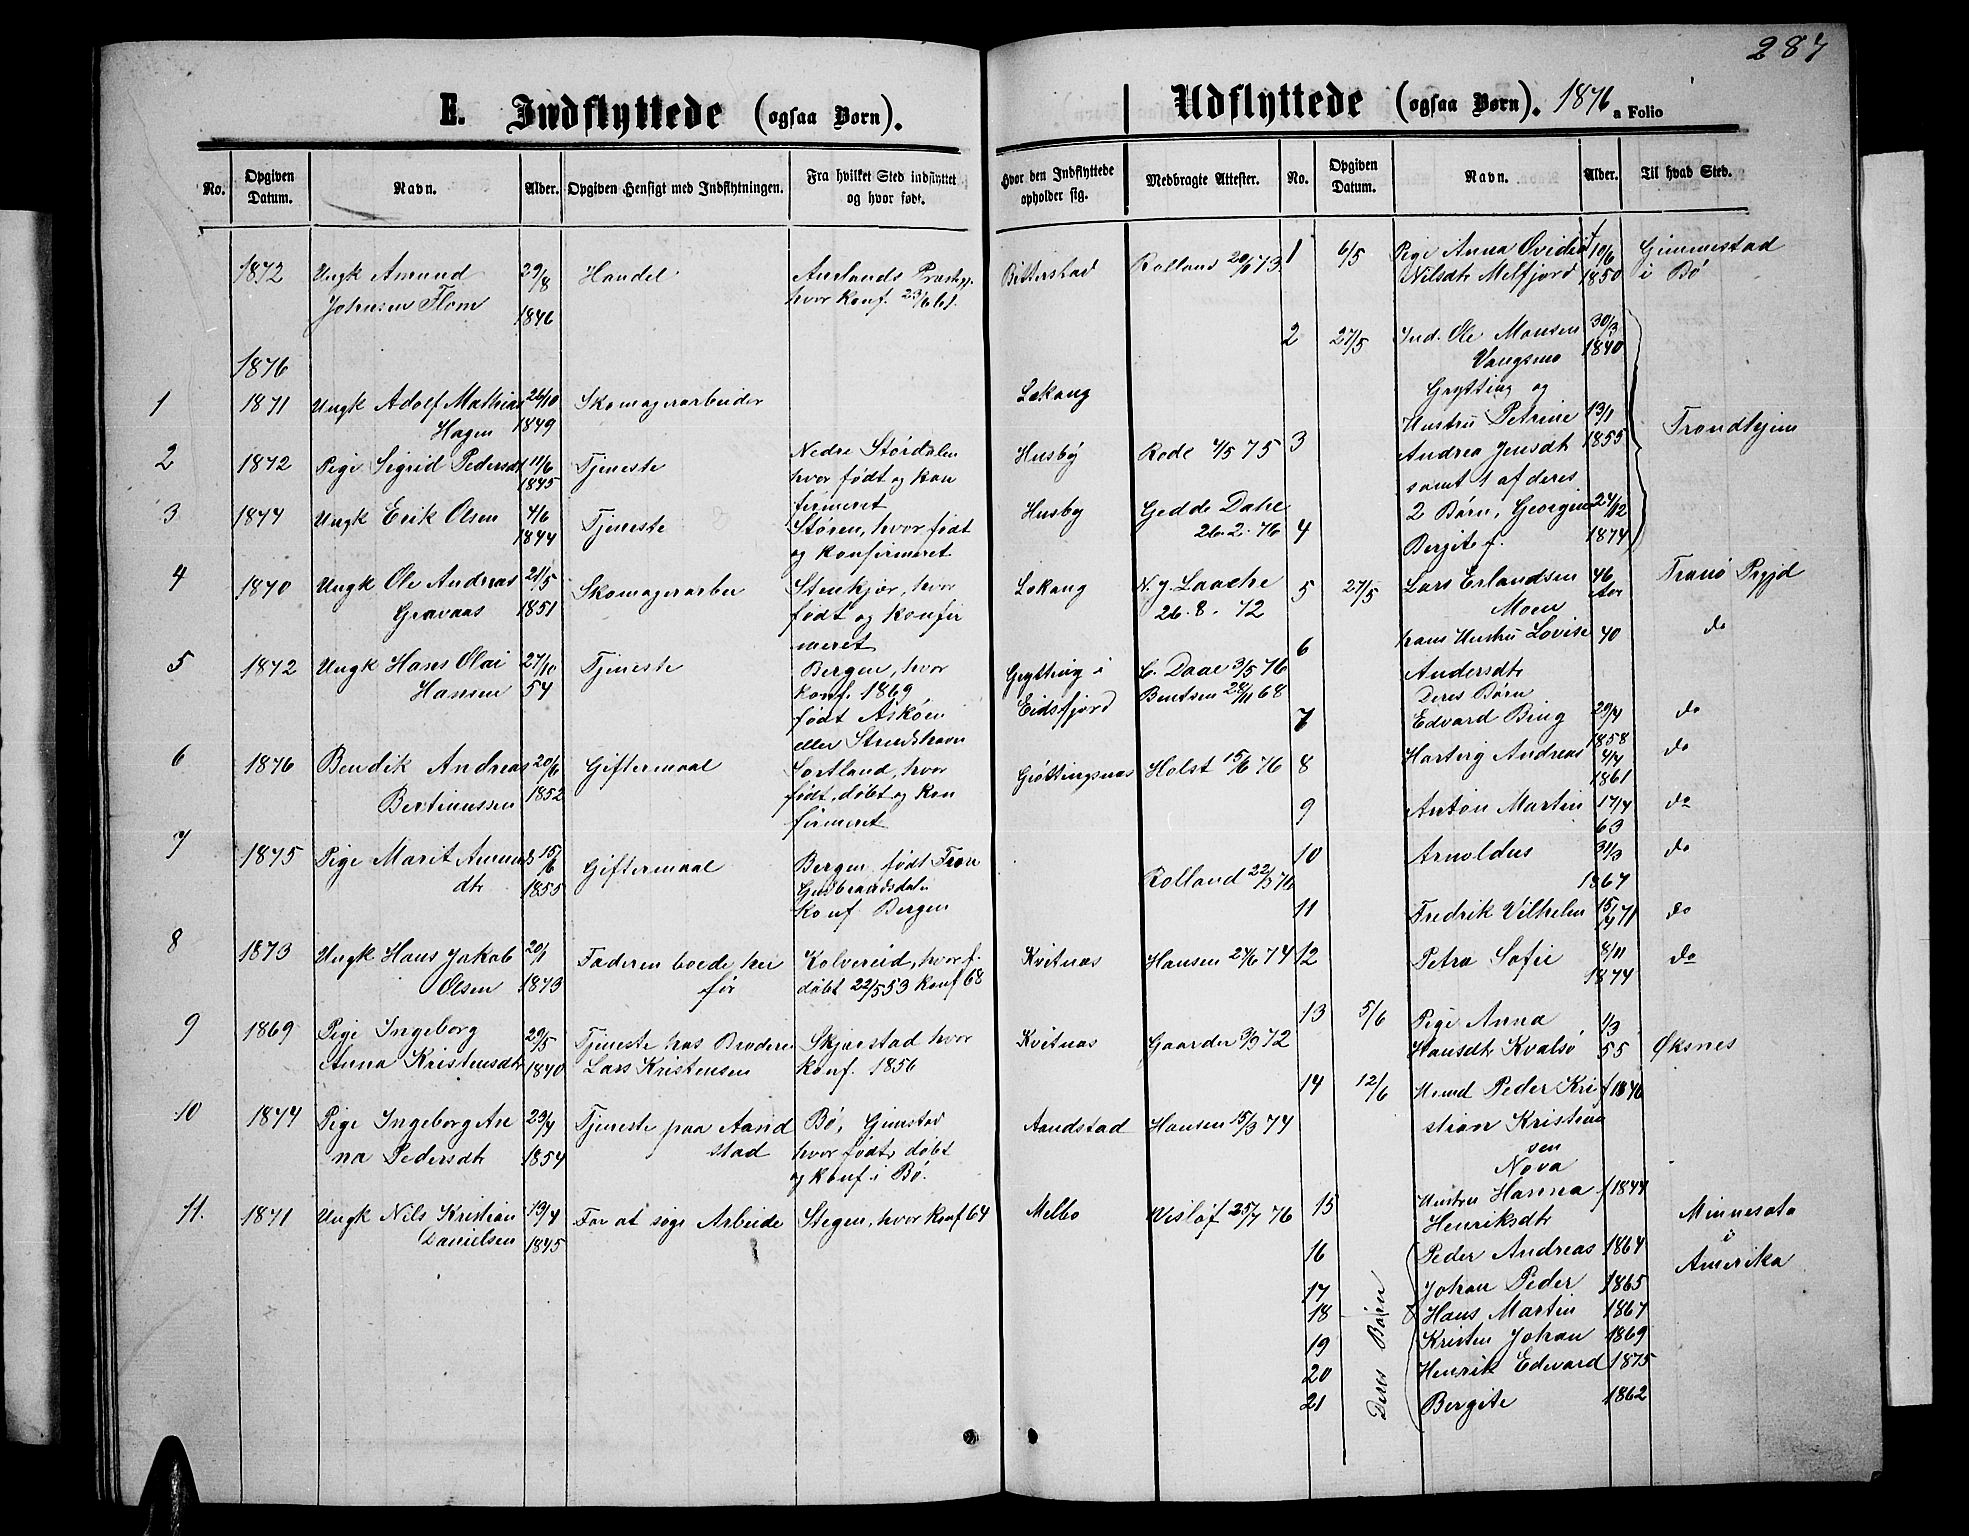 287
E. Indflyttede (ogsaa Børn).
No.
Opgiven Datum.
Navn.
Alder.
Opgiven Hensigt med Indflytningen.
Fra hvilket Sted indflyttet og hvor født.
Hvor den Indflyttede opholder sig.
Medbragte Attester.
1872 Ungk Amund 29/8 Handel Aurlands Præstegj. Bitterstad Rolland 20/6 73
Johnsen Flom 1846 hvor konf. 23/6 61.
1876
1 1871 Ungk Adolf Mathias 26/10 Skomagerarbeider Lekang
Hagen 1849
2 1872 Pige Sigrid Pedersdt 11/6 Tjeneste Nedre Størdalen Husby Rode 4/5 75
1845 hvor født og kon
firmeret
3 1874 Ungk Erik Olsen 4/6 Tjeneste Støren, hvor født Husby Gedde Dahe
1844 og konfirmeret 26.2.76
4 1870 Ungk Ole Andreas 21/5 Skomagerarbei Stenkjær, hvor Lekang N. J. Laache
Gravaas 1851 født og konfir 26.8.72
meret
5 1872 Ungk Hans Olai 27/10 Tjeneste Bergen, hvor Grytting i C. Daae 3/5 76
Hansen 54 konf. 1869 Eidsfjord Bentsen 28/11 68
født Askøen
eller
6 1876 Bendik Andreas 20/6 Giftermaal Sortland, hvor Grøttingsnæs Holst 15/6 76
Bertinussen 1852 født, døbt og kon
firmeret
7 1875 Pige Marit Amund 15/6 Giftermaal Bergen, født Fron Rolland 22/5 76
dt 1855 Gudbrandsdalen
konf. Bergen
8 1873 Ungk Hans Jakob 20/1 Faderen boede her Kolvereid, hvor f. Kvitnæs Hansen 24/6 74
Olsen 1873 før døbt 22/5 53 konf 68
9 1869 Pige Ingeborg 29/5 Tjeneste hos Broderen Skjerstad hvor Kvitnæs Gaarder 3/9 72
Anna Kristensdt 1840 Lars Kristensen konf. 1856
10 1874 Pige Ingeborg An 23/4 Tjeneste paa Aand Bø, Gimstad Aandstad Hansen 15/3 74
na Pedersdt 1854 stad hvor født, døbt
og konf i Bø.
11. 1871 Ungk Nils Kristian 13/4 For at søge Arbeide Stegen, hvor konf 64 Melbo Wisløf 25/7 76
Danielsen 1845
Udflyttede (ogsaa Børn). 1876 a Folio
No.
Opgiven Datum.
Navn.
Alder.
Til hvad Sted.
1 6/5 Pige Anna Ovidia 19/6 Gimmestad
Nilsdt Melfjord 1850 i Bø
2 27/5 Ind. Ole Monsen 30/3
Vangsmo 1840
Grytting og
3 Hustru Petrine 13/1 Trondhjem
Andrea Jensdt 1855
samt 1 af deres
4 2 Børn, Georgine 24/12
Bergite f. 1874
5 27/5 Lars Erlandsen 46 Tranø Prgjd
Moen Aar
6 hans Hustru Lovise 40 do
Andersdt
Deres Børn
7 Edvard Bing 29/4 do
1858
8 Hartvig Andreas 4/4 do
1861
9 Anton Martin 17/4 do
63
10 Arnoldus 31/3 do
1867
11 Fredrik Vilhelm 15/4 71 do
12 Petra Sofie 8/11 do
1874
13 5/6 Pige Anna 1/3
Hansdt Kvalsø 55 Øksnes
14 12/6 Husmd Peder Kri f 1840
stian Kristian
sen
Nova
15 Hustru Hanna f 1844
Henriksdt Minnesota
16 Peder Andreas 1864 i
17 Johan Peder 1865 Amerika
18 Hans Martin 1867
19 Kristen Johan 1869
20 Henrik Edvard 1875
21 Bergite 1862
Deres Børn